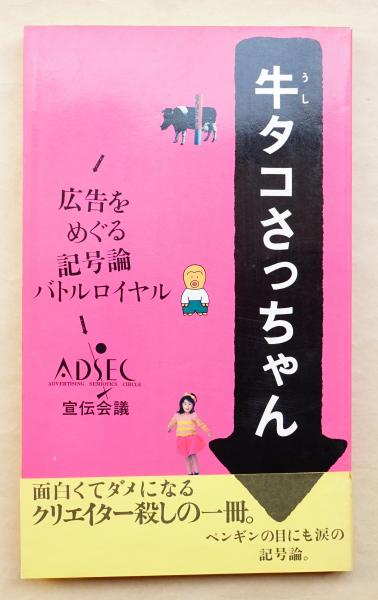 牛タコさっちゃん
うし
広告を
めぐる
記号論
バトルロイヤル
ADSEC
ADVERTISING SEMIOTICS CIRCLE
宣伝会議
面白くてダメになる
クリエイター殺しの一冊。
ペンギンの目にも涙の
記号論。